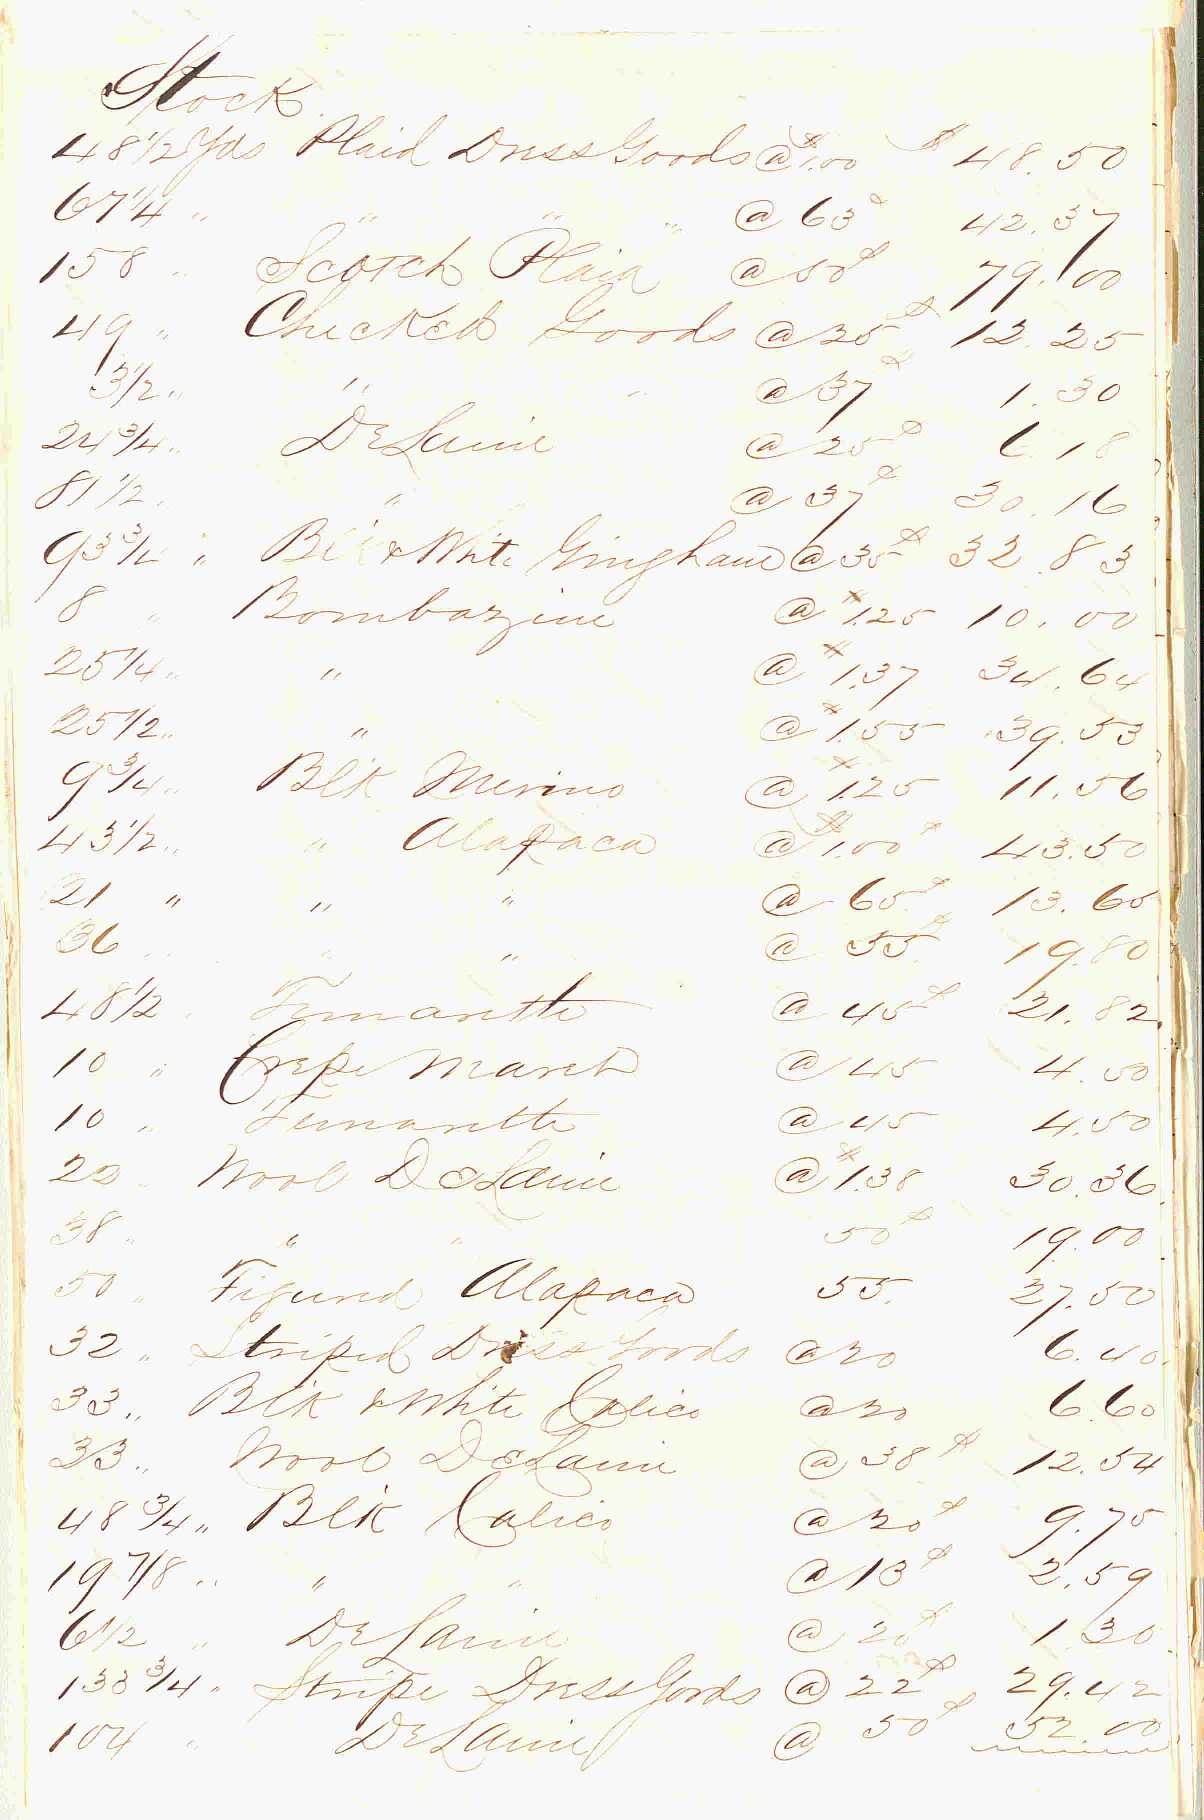 Stock
48 1/2 Yds Plaid Dress Goods @ $1.00 $ 48.50
67 1/4 " " " " @ 63¢ 42.37
158 " Scotch Plaid @ 50¢ 79.00
49 " Checked Goods @ 25¢ 12.25
3 1/2 " " " @ 37¢ 1.30
24 3/4 " DeLaine @ 25¢ 6.18
81 1/2 " " @ 37¢ 30.16
93 3/4 " Blk & White Gingham @ 35¢ 32.83
8 " Bombazine @ $1.25 10.00
25 1/4 " " @ $1.37 34.64
25 1/2 " " @ $1.55 39.53
9 3/4 " Blk Merino @ $1.25 11.56
43 1/2 " " Alapaca @ $1.00 43.50
21 " " " @ 65¢ 13.65
36 " " " @ 55¢ 19.80
48 1/2 " @ 45¢ 21.82
10 " Crepe Maret @ 45 4.50
10 " @ 45 4.50
22 " Wool DeLaine @ $1.38 30.36
38 " " " 50¢ 19.00
50 " Figured Alapaca 55. 27.50
32 " Striped Dress Goods @ 20 6.40
33 " Blk & White Calico @ 20 6.60
33 " Wool DeLaine @ 38¢ 12.54
48 3/4 " Blk Calico @ 20¢ 9.75
19 7/8 " " " @ 13¢ 2.59
6 1/2 " DeLaine @ 20¢ 1.30
133 3/4 " Stripe Dress Goods @ 22¢ 29.42
104 " DeLaine @ 50¢ 52.00